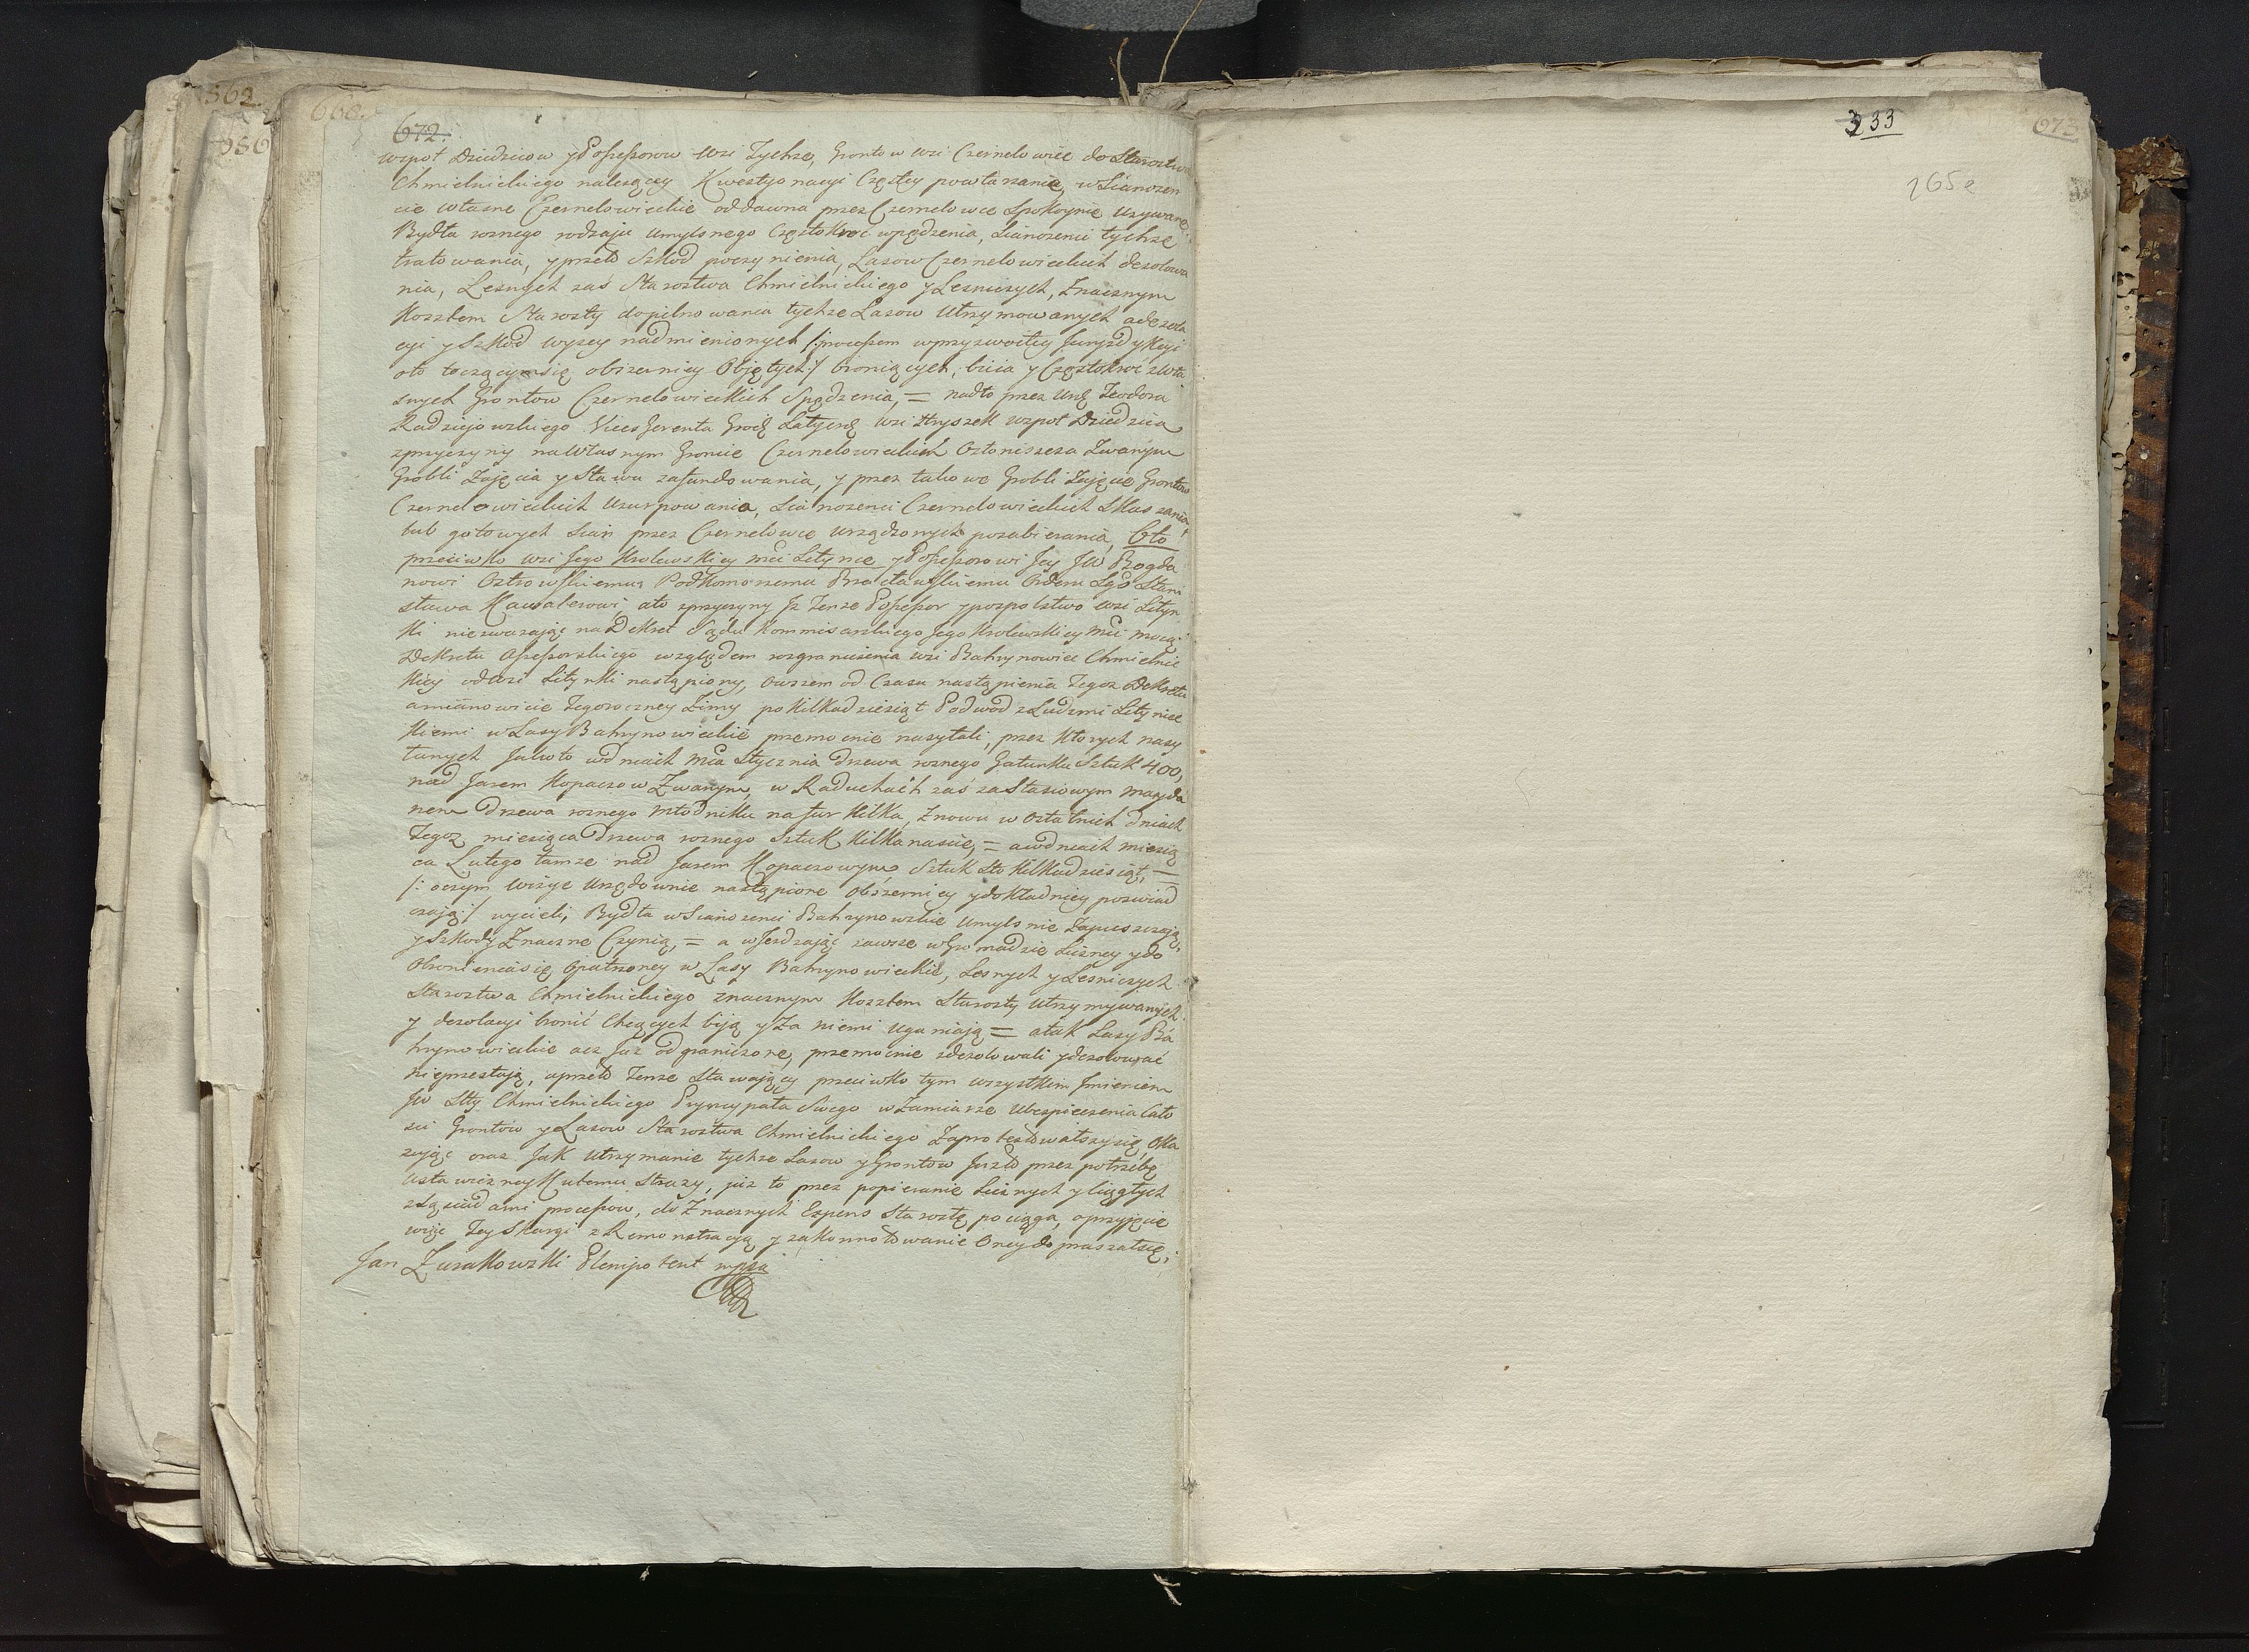 562.
660.
672.
wspoł Dziedzicow y Possessorow wsi Tychze, Grontow wsi Czernelowiec do Starostwa
Chmielnickiego nalezącey Kwestyonacyi Częstey powtarzanie, w Sianozen
cie własne Czernelowieckie oddawna przez Czernelowce Spokoynie uzywane
Bydła roznego rodzaju umyslnego Częstokroć wpędzenia, Sianozenci tychze
tratowania, y przeto Szkod poczynienia, Lasow Czernelowieckich desolowa
nia, Lesnych zas Starostwa Chmielnickiego y Lesniczych, Znacznym
Kosztem Starosty dopilnowania tychze Lasow Utrzymowanych a dezola
cyi y Szkod wyzey nadmienionych /: processem w przyzwoitey Juryzdykcyi
oto toczącym się obszerniey Objętych :/ broniących, bicia y Częstokroć z wła
snych Grontow Czernelowieckich Spędzenia, = nadto przez Urę Teodora
Radziejowskiego Vices Gerenta Grodź Latycz wsi Hryszek wspoł Dziedzica
zprzyczyny na Własnym Groncie Czernelowieckich Zwanym
Grobli Zajęcia y Stawu zafundowania, y przez takowe Grobli Zajęcie Grontow
Czernelowieckich Uzurpowania, Sianozenci Czernelowieckich Skaszania,
lub gotowych Sian przez Czernelowce urządzonych pozabierania, Oto
przeciwko wsi Jego Krolewskiey mci Letynce y Possessorowi Jey JW Bogda
nowi Ostrowskiemu Podkomorzemu Bracławskiemu Orderu Sgo Stani
sława Kawalerowi, ato zprzyczyny Iz Tenze Possessor y pospolstwo wsi Letyn
ki niezwazając na Dekret Sądu Kommisarskiego Jego Krolewskiey Mci mocą
Dekretu Assessorskiego względem rozgraniczenia wsi Bahrynowiec Chmielnic
kiey od wsi Litynki nastąpiony, owszem od Czasu nastąpienia Tegoz Dekretu
a mianowicie Tegoroczney Zimy po Kilkadziesiąt Podwod z Ludzmi Letyniec
kiemi w Lasy Bahrynowieckie przemocnie nasyłali, przez Ktorych nasy
łanych Jakoto w dniach Mca Stycznia drzewa roznego Gatunku Sztuk 400,
nad Jarem Kopaczow Zwanym, w Raduchach zaś za Stasiowym Mayda
nem Drzewa roznego Młodniku na fur Kilka, Znowu w Ostatnich dniach
Tegoz miesiąca Drzewa roznego Sztuk Kilkanascie, = a w dniach miesią
ca Lutego tamze nad Jarem Kopaczowym Sztuk Sto Kilkadziesiąt, =
/: oczym Wizye Urzędownie nastąpione obszerniey y dokładniey poswiad
czają :/ wycieli, Bydła w Sianozenci Bahrynowskie Umyslnie Zapuszczają,
y Szkody Znaczne Czynią, = a wjezdzając zawsze w Gromadzie Liczney y do
Obronienia się Opatrzoney w Lasy Bahrynowieckie, Lesnych y Lesniczych
Starostwa Chmielnickiego znacznym Kosztem Starosty Utrzymywanych
y desolacyi bronić Chcących biją y Za niemi uganiają = a tak Lasy Ba
hrynowieckie acz Juz odgraniczone, przemocnie zdezolowali y dezolowac
nieprzestają, a przeto Tenze Stawający przeciwko tym wszystkim Imieniem
JW Stty Chmielnickiego Pryncypała Swego w Zamiarze Ubespieczenia Cało
sci Grontow y Lasow Starostwa Chmielnickiego Zaprotestowałszy się, Oka
zując oraz Jak Utrzymanie tychze Lasow y Grontow Juz to przez potrzebę
ustawiczney Kutemu Strazy, juz to przez popieranie Licznych y ciągłych
z Sąsiadami processow, do Znacznych Expens Starostę pociąga, o przyjęcie
więc Tey Skargi z Remonstracyą y zakonnotowanie Oney do praszałsię,;
Jan Zurakowski Plenipotent mppa
333
673
265e